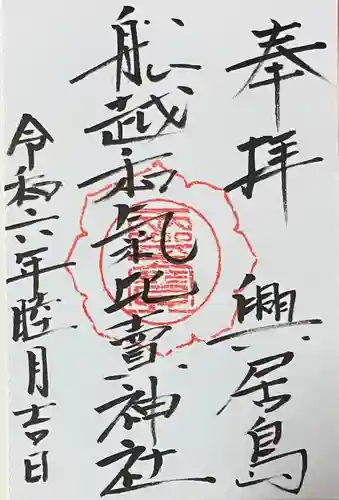 奉拝 興居島
船越和氣比賣神社
令和六年睦月吉日